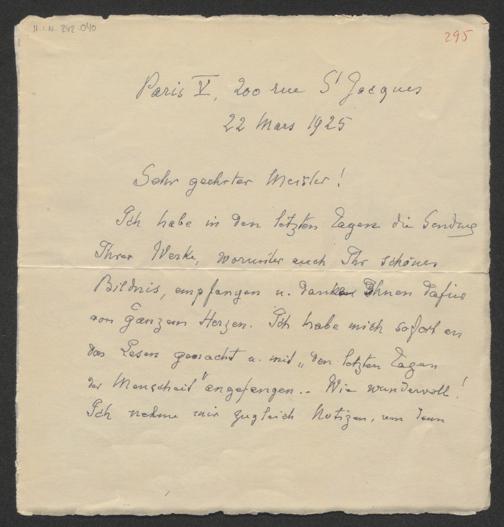 H.I.N. 242.040
295
Paris V, 200 rue St Jacques
22 Mars 1925
Sehr geehrter Meister!
Ich habe in den letzten Tagen die Sendung
Ihrer Werke, worunter auch Ihr schönes
Bildnis, empfangen u. danke Ihnen dafür
von ganzem Herzen. Ich habe mich sofort an
das Lesen gemacht u. mit „den letzten Tagen
der Menschheit" angefangen.. Wie wundervoll!
Ich nehme mir zugleich Notizen, um dann